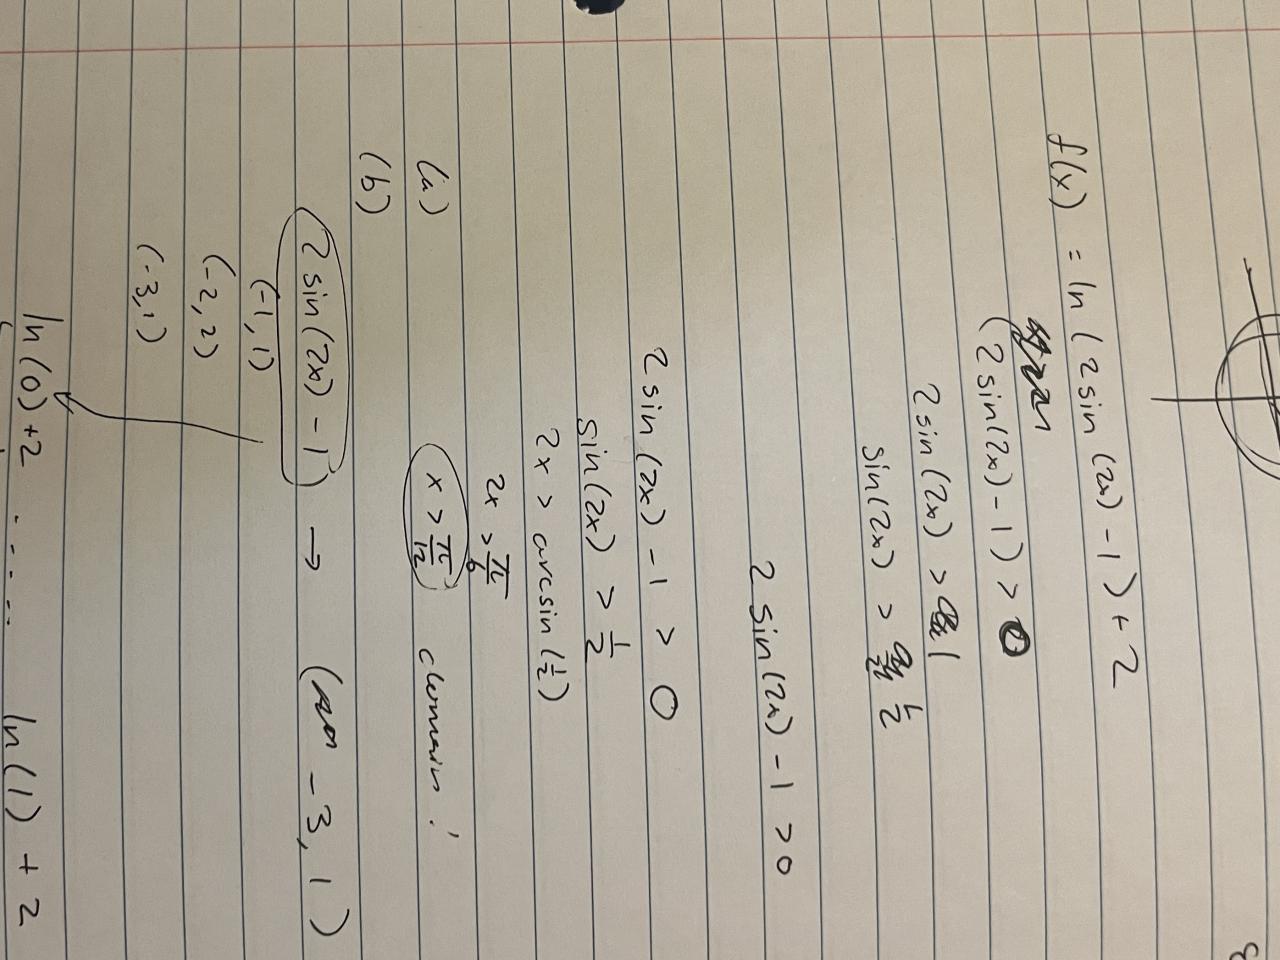 f(x) = ln(2sin(2x) - 1) + 2
(2sin(2x) - 1) > 0
2sin(2x) > 1
sin(2x) > 1/2
2sin(2x) - 1 > 0
2sin(2x) - 1 > 0
sin(2x) > 1/2
2x > arcsin(1/2)
2x > π/6
(a) x > π/12 domain!
(b)
2sin(2x) - 1 → (-3, 1)
(-1, 1)
(-2, 2)
(-3, 1)
ln(0) + 2 ...... ln(1) + 2